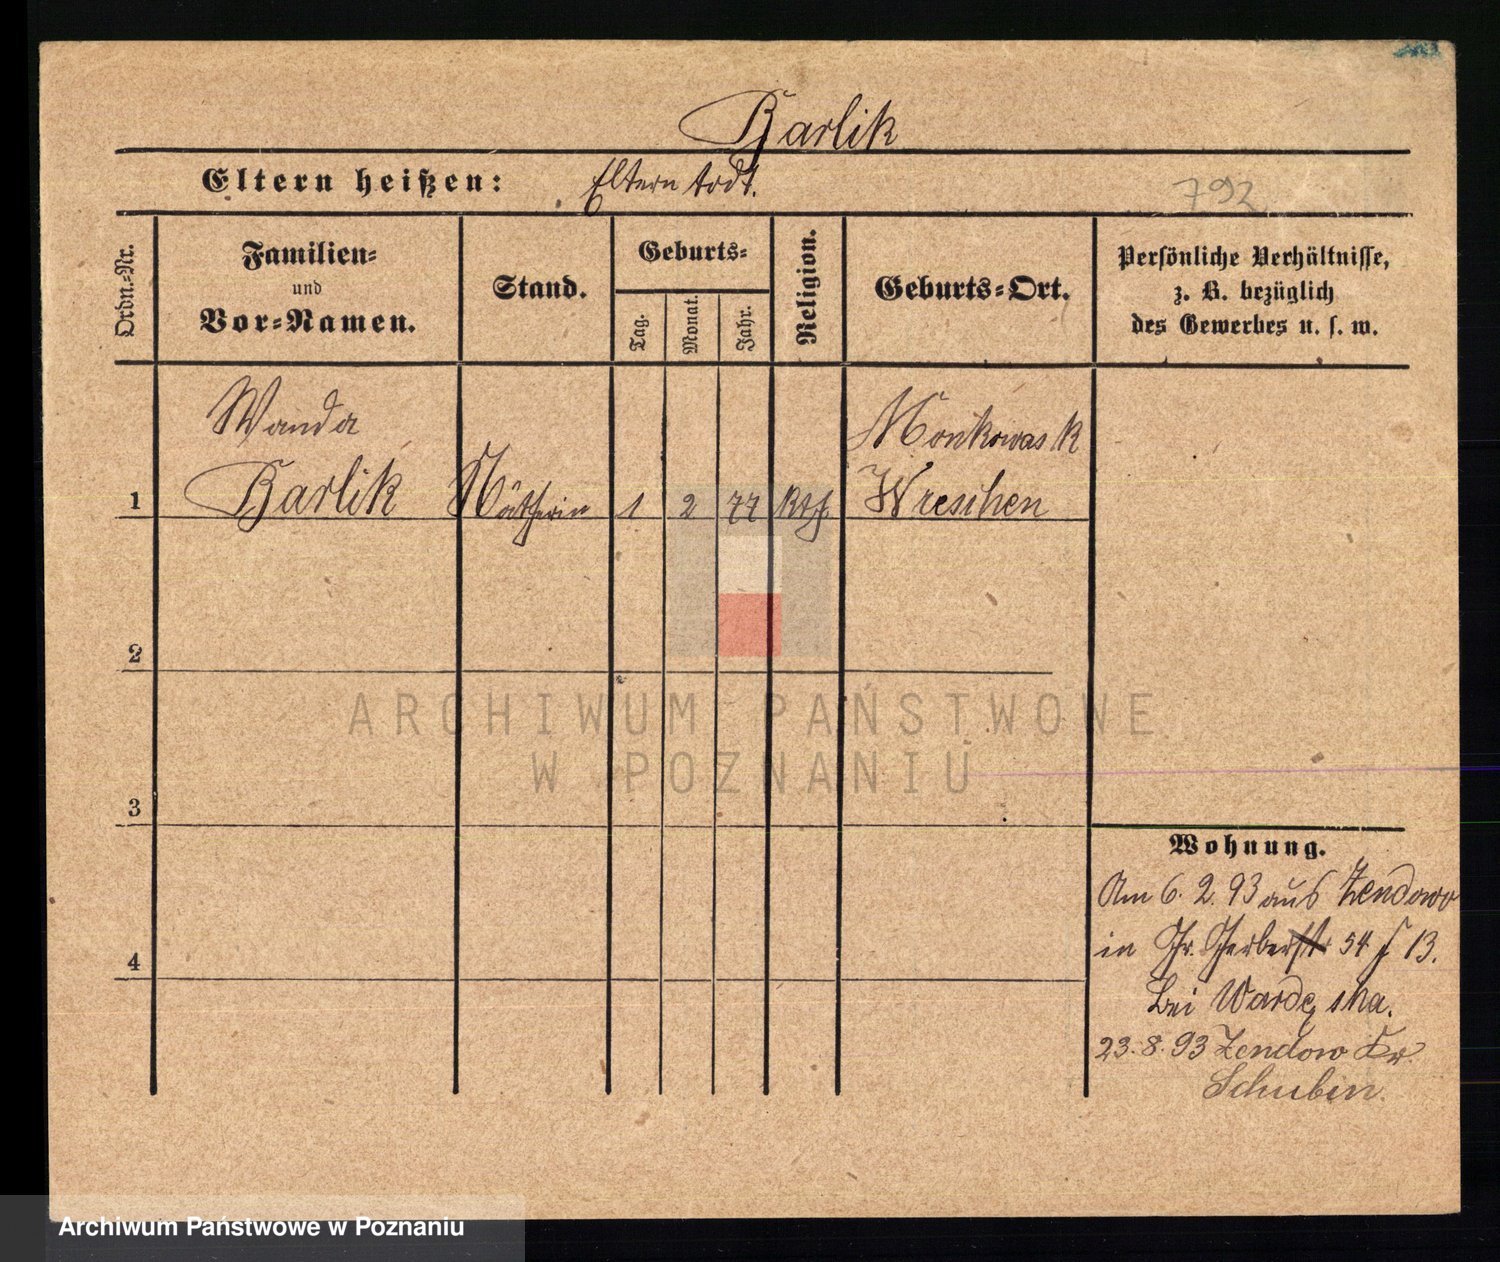 Barlik
Eltern heißen: Eltern todt.
792
Ordn.-Nr.
Familien-
und
Vor-Namen.
Stand.
Geburts-
Tag.
Monat.
Jahr.
Religion.
Geburts-Ort.
Persönliche Verhältnisse,
z. B. bezüglich
des Gewerbes u. s. w.
Wanda
Barlik
Nätherin
1 2 77 kth
Wreschen
1
2
3
4
Wohnung.
Am 6. 2. 93 aus Zendowo
in Gr. Gerberst 54 13.
bei
23. 8. 93 Zendowo Kr.
Schubin.
ARCHIWUM PAŃSTWOWE
W POZNANIU
Archiwum Państwowe w Poznaniu